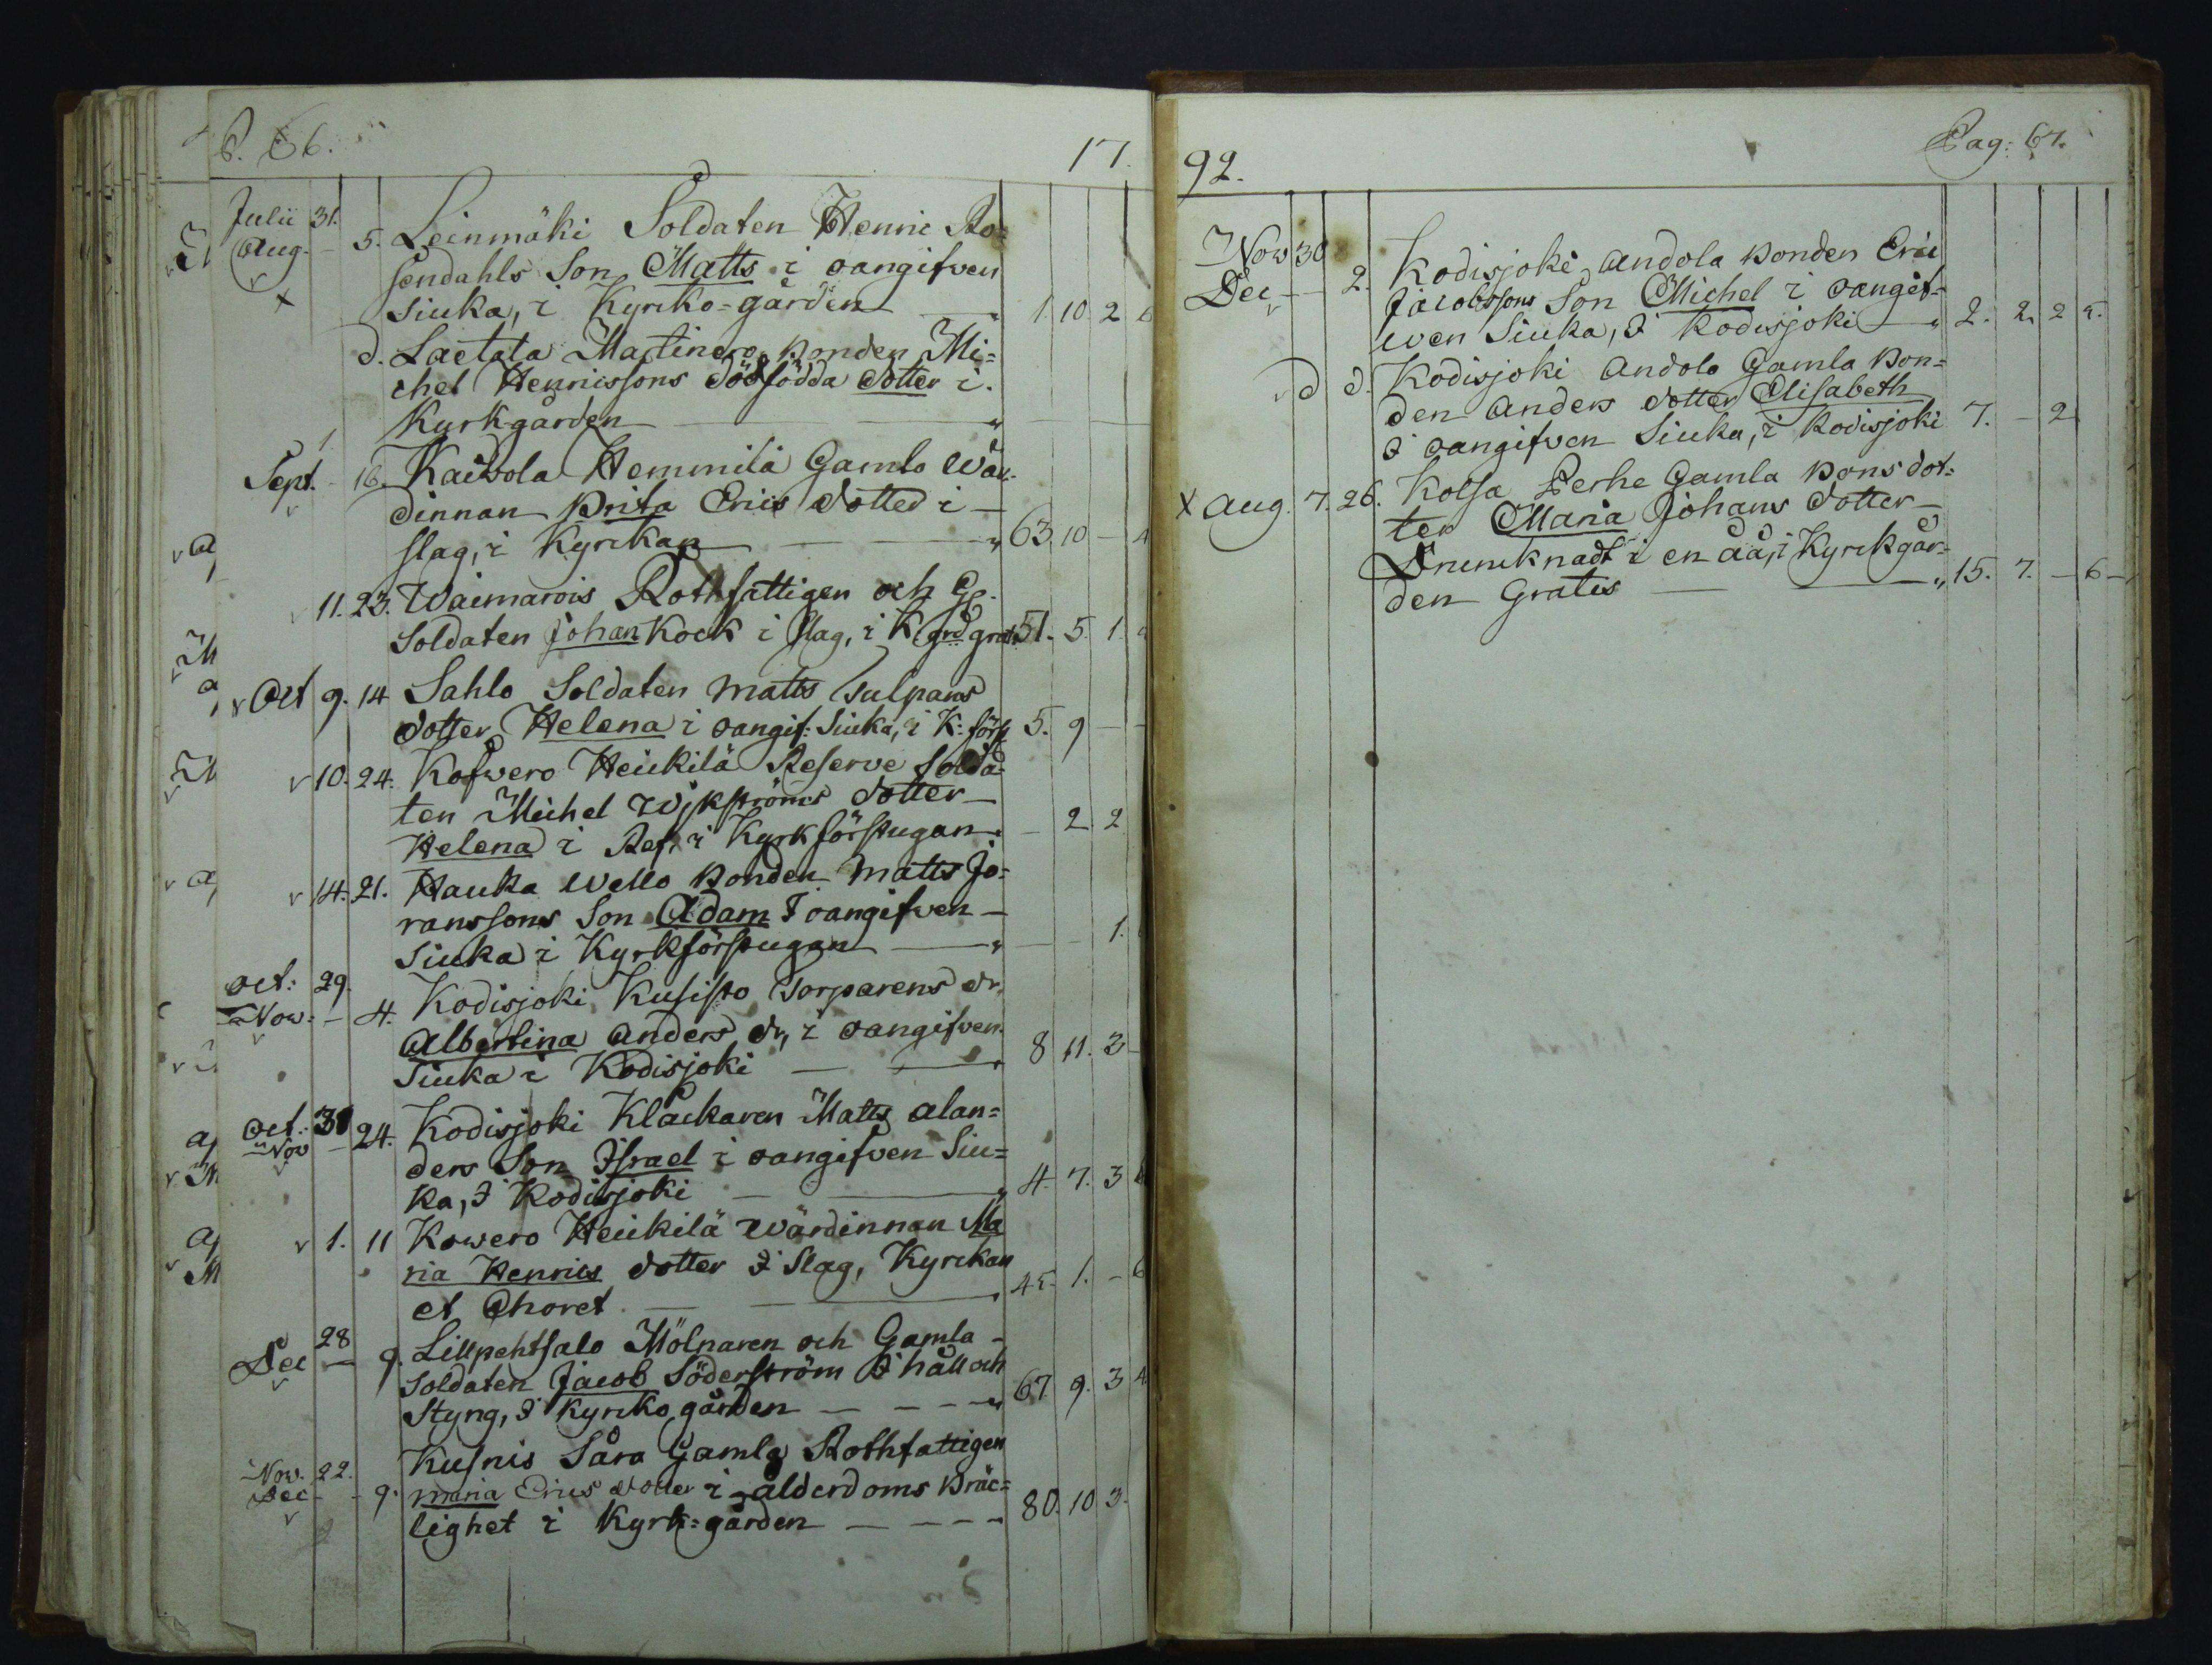 P. 66.
17
Julii 31.
Aug. - 5. Leinmäki Soldaten Henric Ro=
sendahls Son Matts i oangifven
Siuka, i Kyrko=gården 1. 10 2
d. Laetala Martinero Bonden Mi=
chel Henricssons dödfödda dotter i
Kyrkgården
Sept. - 16. Kaivola Hemmilä Gamla Wär=
dinnan Brita Erics dotter i
slag, i Kyrckan 63. 10 -
11. 23. Waimarois Rothfattigen och G.
Soldaten Johan Kock i slag, i K grd grat. 51. 5. 1.
Oct 9. 14 Sahlo Soldaten Matts Tulpans
dotter Helena i oangif: Siuka, i K: förs 5. 9 - -
10. 24. Kofvero Heickilä Reserve Solda=
ten Michel Wikströms dotter
Helena i Ref, i Kyrkförstugan - 2 2
14. 21. Hauka Wello Bonden Matts Jö=
ranssons Son Adam I oangifven
Siuka i Kyrkförstugan - - 1.
Oct: 29.
Nov: - 4. Kodisjoki Kusisto Torparens dr
Albertina Anders dr, i oangifven
Siuka i Kodisjoki 8 11. 3
Oct: 31
Nov - 24. Kodisjoki Klackaren Matts Alan=
ders Son Israel i oangifven Siu=
ka, I Kodisjoki 4. 7. 3
1. 11 Kowero Heickilä Wärdinnan Ma
ria Henrics dotter I Slag, Kyrckan
et Choret 45. 1. - 6
28
Dec - 9. Lillpehtsalo Mölnaren och Gamla
Soldaten Jacob Söderström I håll och
Styng, I Kyrcko gården 67. 9. 3 4
Kusnis Sara Gamla Rothfattigen
Nov. 22.
Dec - - 9. Maria Erics dotter i ålderdoms Bräc=
lighet i Kyrk=gården 80. 10 3.
92.
Pag: 67.
Nov 30
Dec - - 2. Kodisjoki Andola Bonden Eric
Jacobssons Son Michel i oangif=
wen Siuka, I Kodisjoki 2. 2. 2 5.
d d. Kodisjoki Andola Gamla Bon=
den Anders dotter Elisabeth
I oangifven Siuka, i Kodisjoki 7. - 2
X Aug. 7. 26. Kolla Perhe Gamla Bonsdot=
ter Maria Johans dotter
Drunknadt i en åå, i Kyrckgår=
den Gratis 15. 7. - 6 -